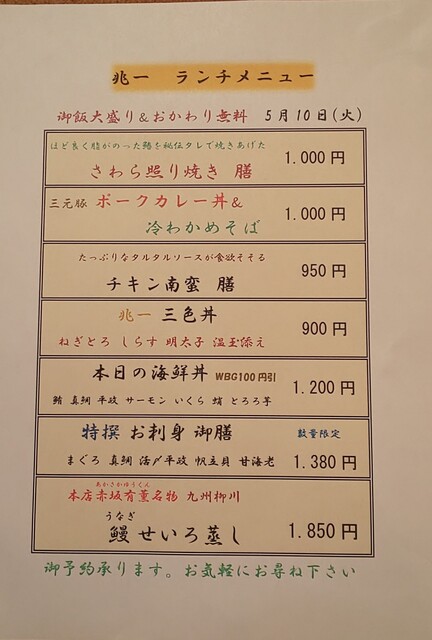 兆一 ランチメニュー
御飯大盛り&おかわり無料 5月10日(火)
ほど良く脂がのった鰆を秘伝タレで焼きあげた
さわら照り焼き 膳 1.000円
三元豚 ポークカレー丼&
冷わかめそば 1.000円
たっぷりなタルタルソースが食欲そそる
チキン南蛮 膳 950円
兆一 三色丼
ねぎとろ しらす 明太子 温玉添え 900円
本日の海鮮丼 WBG100円引
鮪 真鯛 平政 サーモン いくら 蛸 とろろ芋 1.200円
特撰 お刺身 御膳 数量限定
まぐろ 真鯛 活〆平政 帆立貝 甘海老 1.380円
あかさかゆうくん
本店赤坂有薫名物 九州柳川
うなぎ
鰻 せいろ蒸し 1.850円
御予約承ります。お気軽にお尋ね下さい